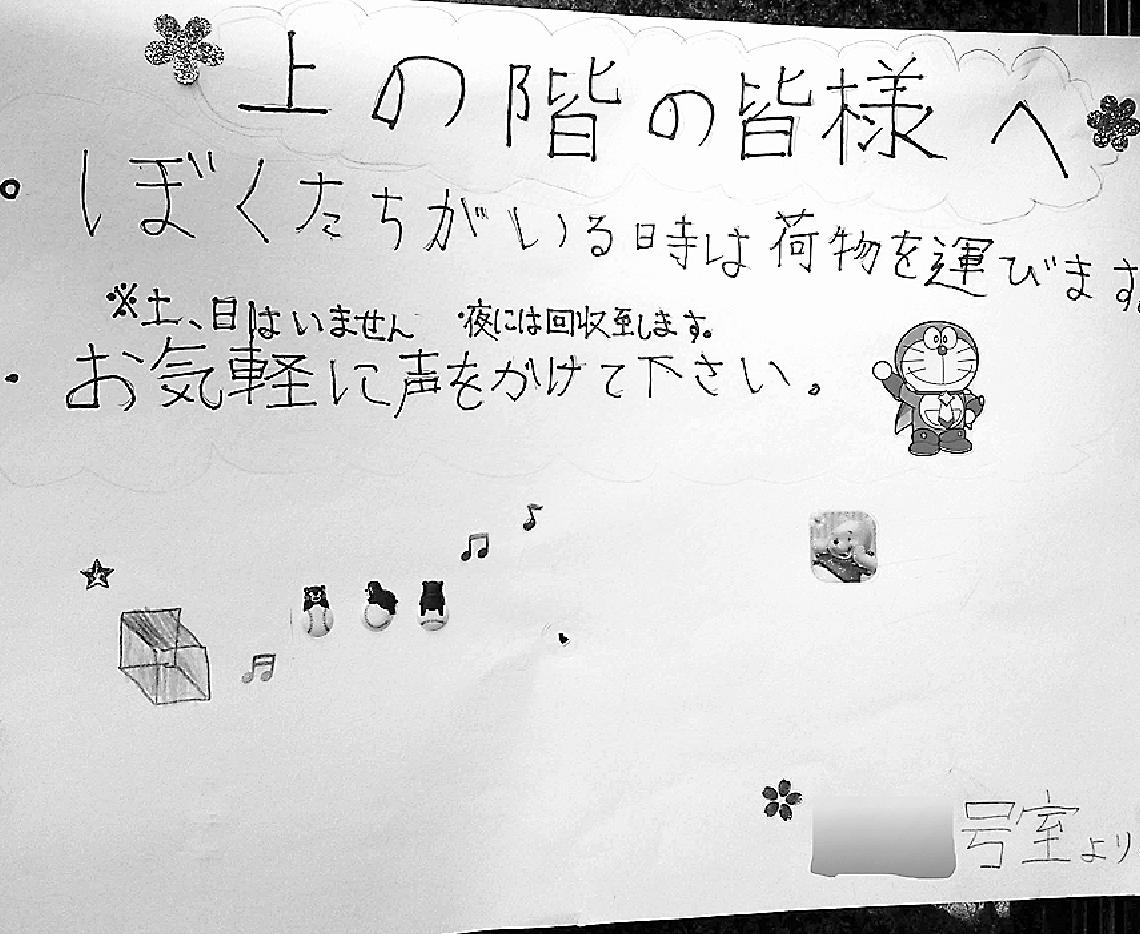 上の階の皆様へ
。ぼくたちがいる時は荷物を運びます。
※土、日はいません ・夜には回収致します。
・お気軽に声をかけて下さい。
号室より